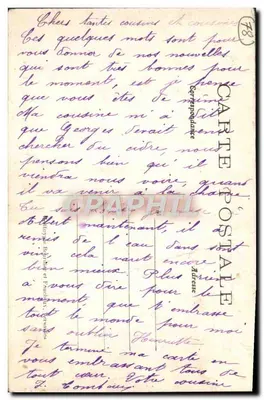 Chers tantes cousins et cousines
Ces quelques mots sont pour
vous donner de nos nouvelles
qui sont très bonnes pour
le moment, et je pense
que vous êtes de même
Ma cousine m'a dit
que Georges venait
chercher du cidre, nous
pensons bien qu'il
viendra nous voire, quand
il va venir à la
Albert maintenant, il
remis de l'eau dans son
vin cela vaut encore
bien mieux Plus rien
à vous dire pour le
moment que t'embrasse
tout le monde pour moi
sans oublier Henriette
Je termine ma carte en
vous embrassant tous de
tout cœur Votre cousine
CARTE POSTALE
Correspondance
Adresse
78
CPAPHIL